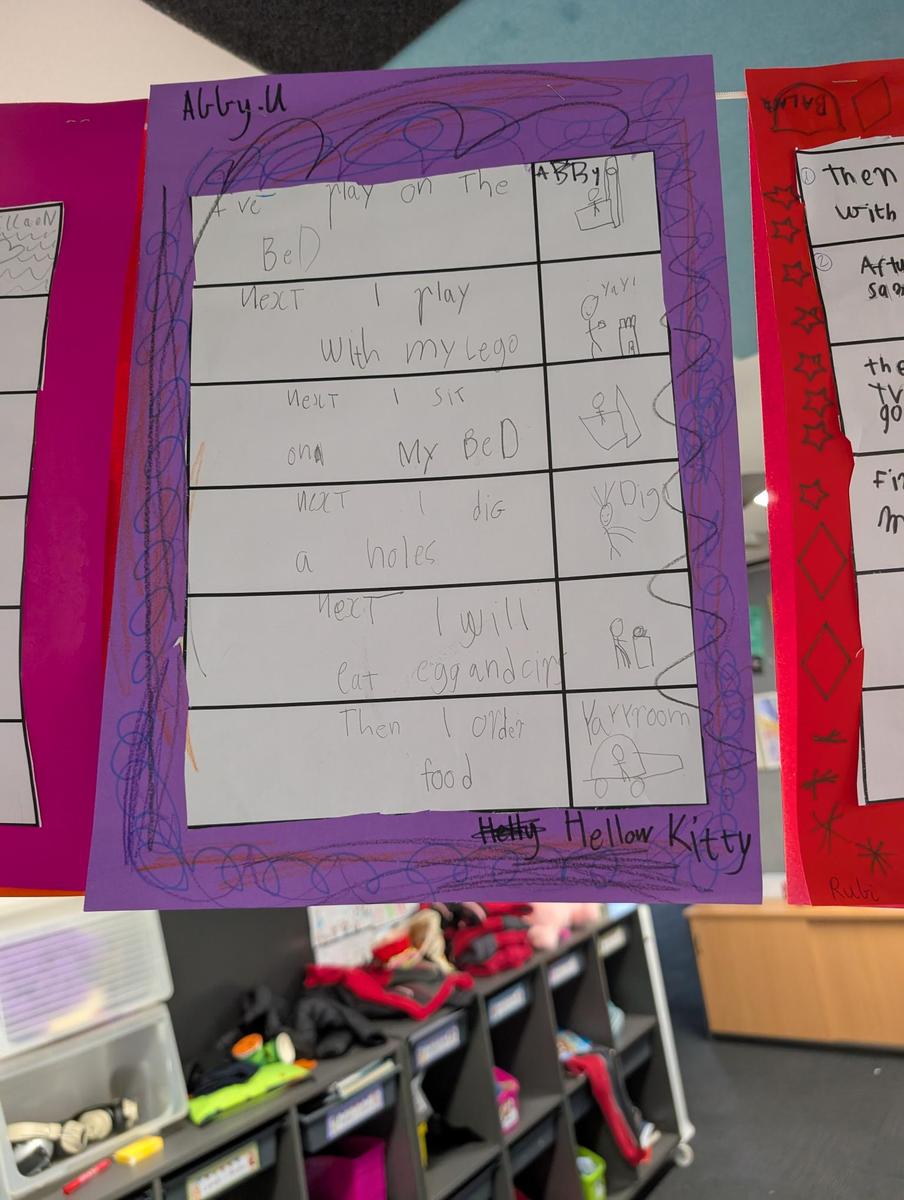 Abby.U
I've play on The
BeD
ABBy
Next I play
With my Lego
YaY!
Next I sit
on My BeD
Next I dig
a holes
Dig
Next I will
eat egg and
Then I order
food
Yarrroom
Hellow Kitty
BALA
① then
with
② Aftu
san
the
TV
go
Fi
m
Rubi